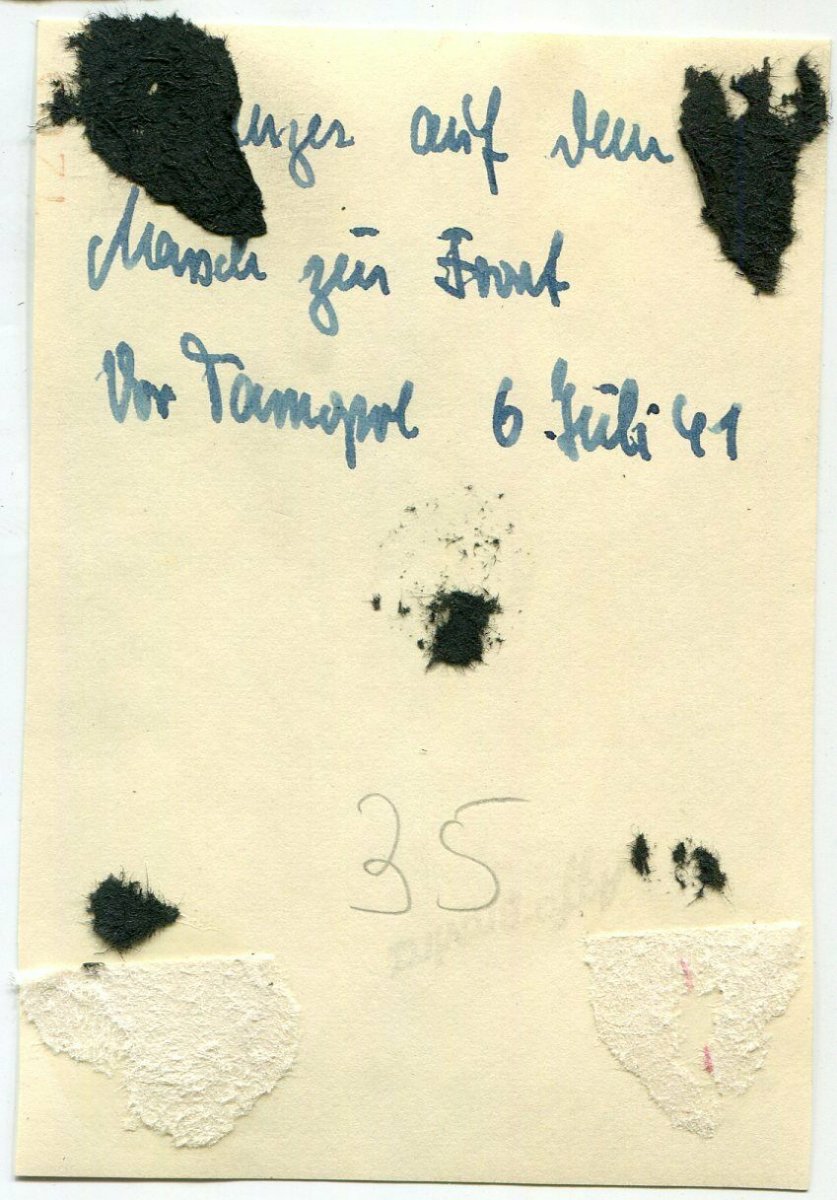 auf dem
Marsch zur Front
Vor Tarnopol 6 Juli 41
35